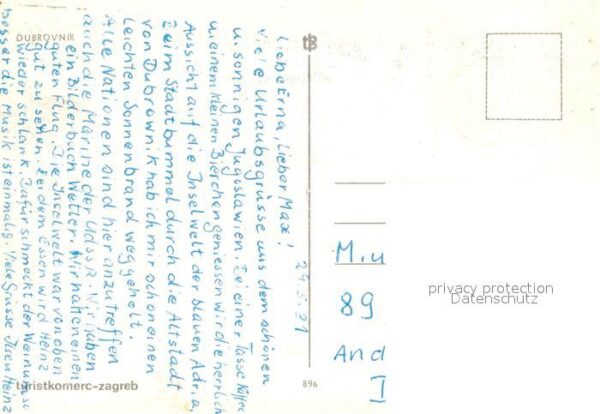 DUBROVNIK
29.5.71
Liebe Erna, Lieber Max!
Viele Urlaubsgrüsse aus dem schönen
u. sonnigen Jugoslawien. Bei einer Tasse Kaffee
u. einem kleinen Bierchen geniessen wir die herrlich
Aussicht auf die Inselwelt der blauen Adria,
Beim Stadtbummel durch die Altstadt
von Dubrownik hab ich mir schon einen
leichten Sonnenbrand weggeholt.
Alle Nationen sind hier anzutreffen
auch die Marine der UdSSR. Wir haben
ein Bilderbuch Wetter. Wir hatten einen
guten Flug. Die Inselwelt war von oben
gut zu sehen. Bei dem Essen wird Heinz
wieder schlank. Dafür schmeckt der Wein um so
besser die Musik ist einmalig. Viele Grüsse Heinz
M. u
89
And
I
turistkomerc-zagreb
896
privacy protection
Datenschutz